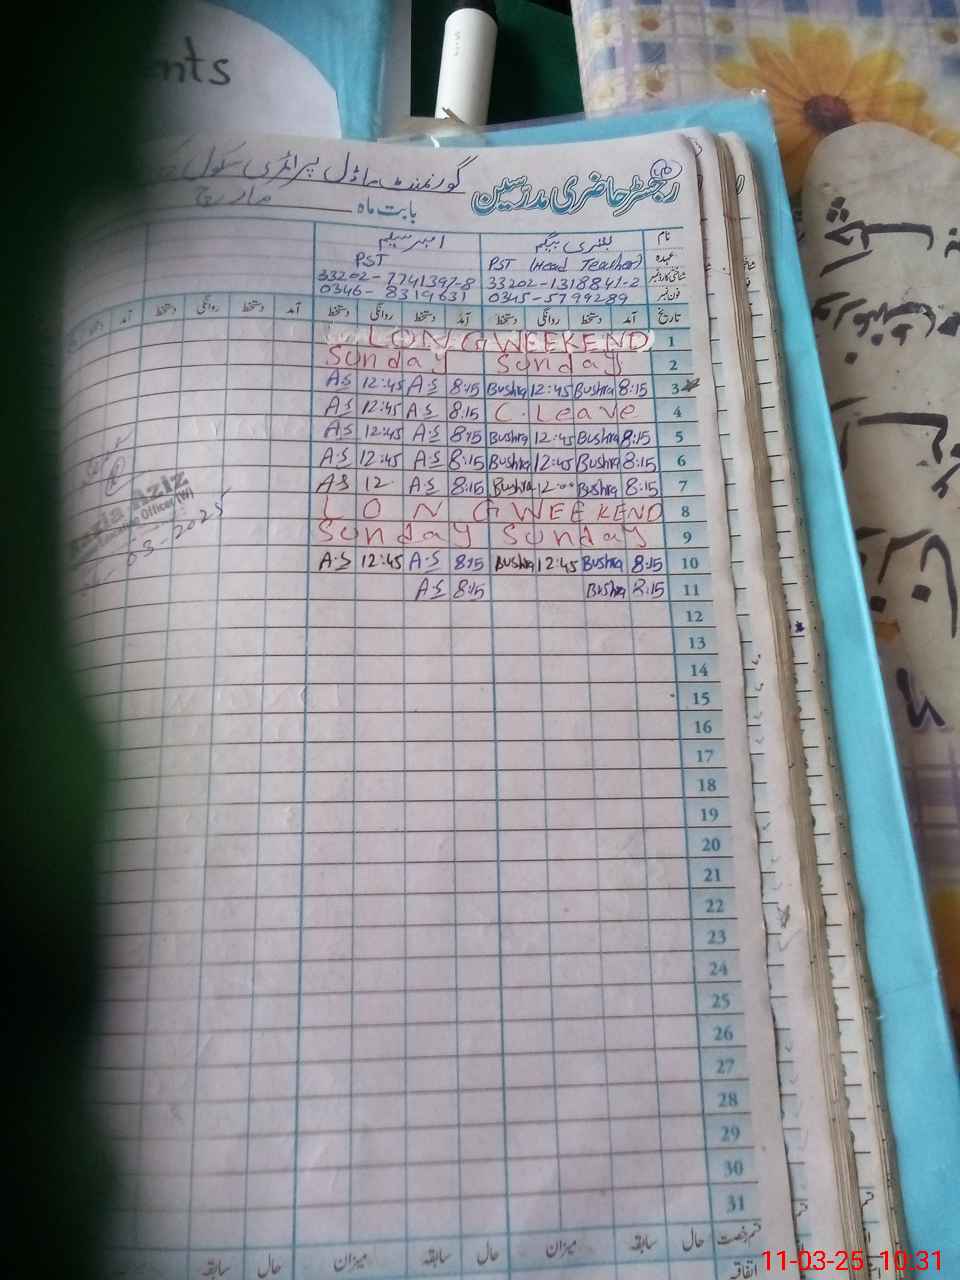 nts
گورنمنٹ ماڈل پرائمری سکول
رجسٹر حاضری مدرسین
بابت ماہ مارچ
نام بشریٰ بیگم
عہدہ PST (Head Teacher) PST
شناختی کارڈ نمبر 33202-1318841-2 33202-7741397-8
فون نمبر 0345-5799289 0346-8319631
تاریخ آمد دستخط روانگی دستخط آمد دستخط روانگی دستخط آمد دستخط روانگی دستخط آمد
1 LONG WEEKEND
2 Sunday Sunday
3 8:15 Bushra 12:45 Bushra 8:15 A.S 12:45 A.S
4 C. Leave 8:15 A.S 12:45 A.S
5 8:15 Bushra 12:45 Bushra 8:15 A.S 12:45 A.S
6 8:15 Bushra 12:45 Bushra 8:15 A.S 12:45 A.S
7 8:15 Bushra 12:00 Bushra 8:15 A.S 12 A.S
8 LONG WEEKEND
9 Sunday Sunday
10 8:15 Bushra 12:45 Bushra 8:15 A.S 12:45 A.S
11 8:15 Bushra 8:15 A.S
12
13
14
15
16
17
18
19
20
21
22
23
24
25
26
27
28
29
30
31
Aziz
Officer (W)
03-2025
قسم رخصت حال سابقہ میزان حال سابقہ میزان حال سابقہ
اتفاقیہ
11-03-25 10:31